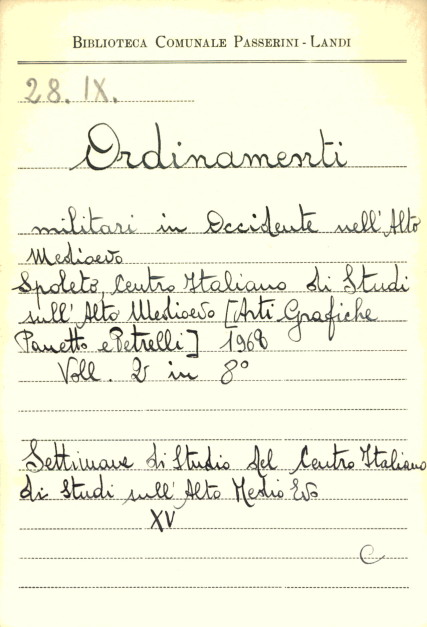 BIBLIOTECA COMUNALE PASSERINI - LANDI
28. IX.
Ordinamenti
militari in Occidente nell'Alto
Medioevo
Spoleto, Centro Italiano di Studi
sull'Alto Medioevo [Arti Grafiche
Panetto e Petrelli] 1968
Voll. 2 in 8°
Settimane di Studio del Centro Italiano
di Studi sull'Alto Medio Evo
XV
C